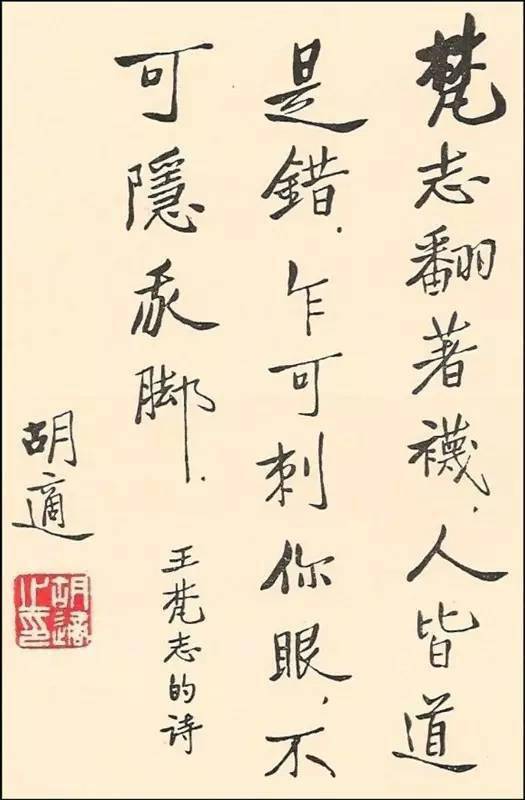 梵志翻著襪，人皆道
是錯．乍可刺你眼，不
可隱我脚．
王梵志的詩
胡適
胡適之印